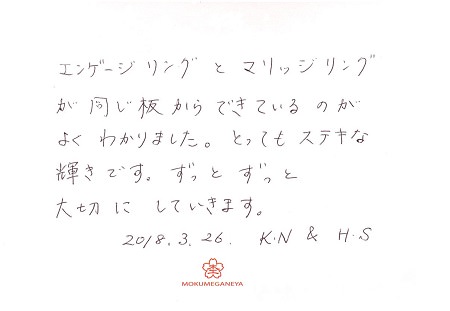 エンゲージリングとマリッジリング
が同じ板からできているのが
よくわかりました。とってもステキな
輝きです。ずっとずっと
大切にしていきます。
2018.3.26. K.N & H.S
MOKUMEGANEYA